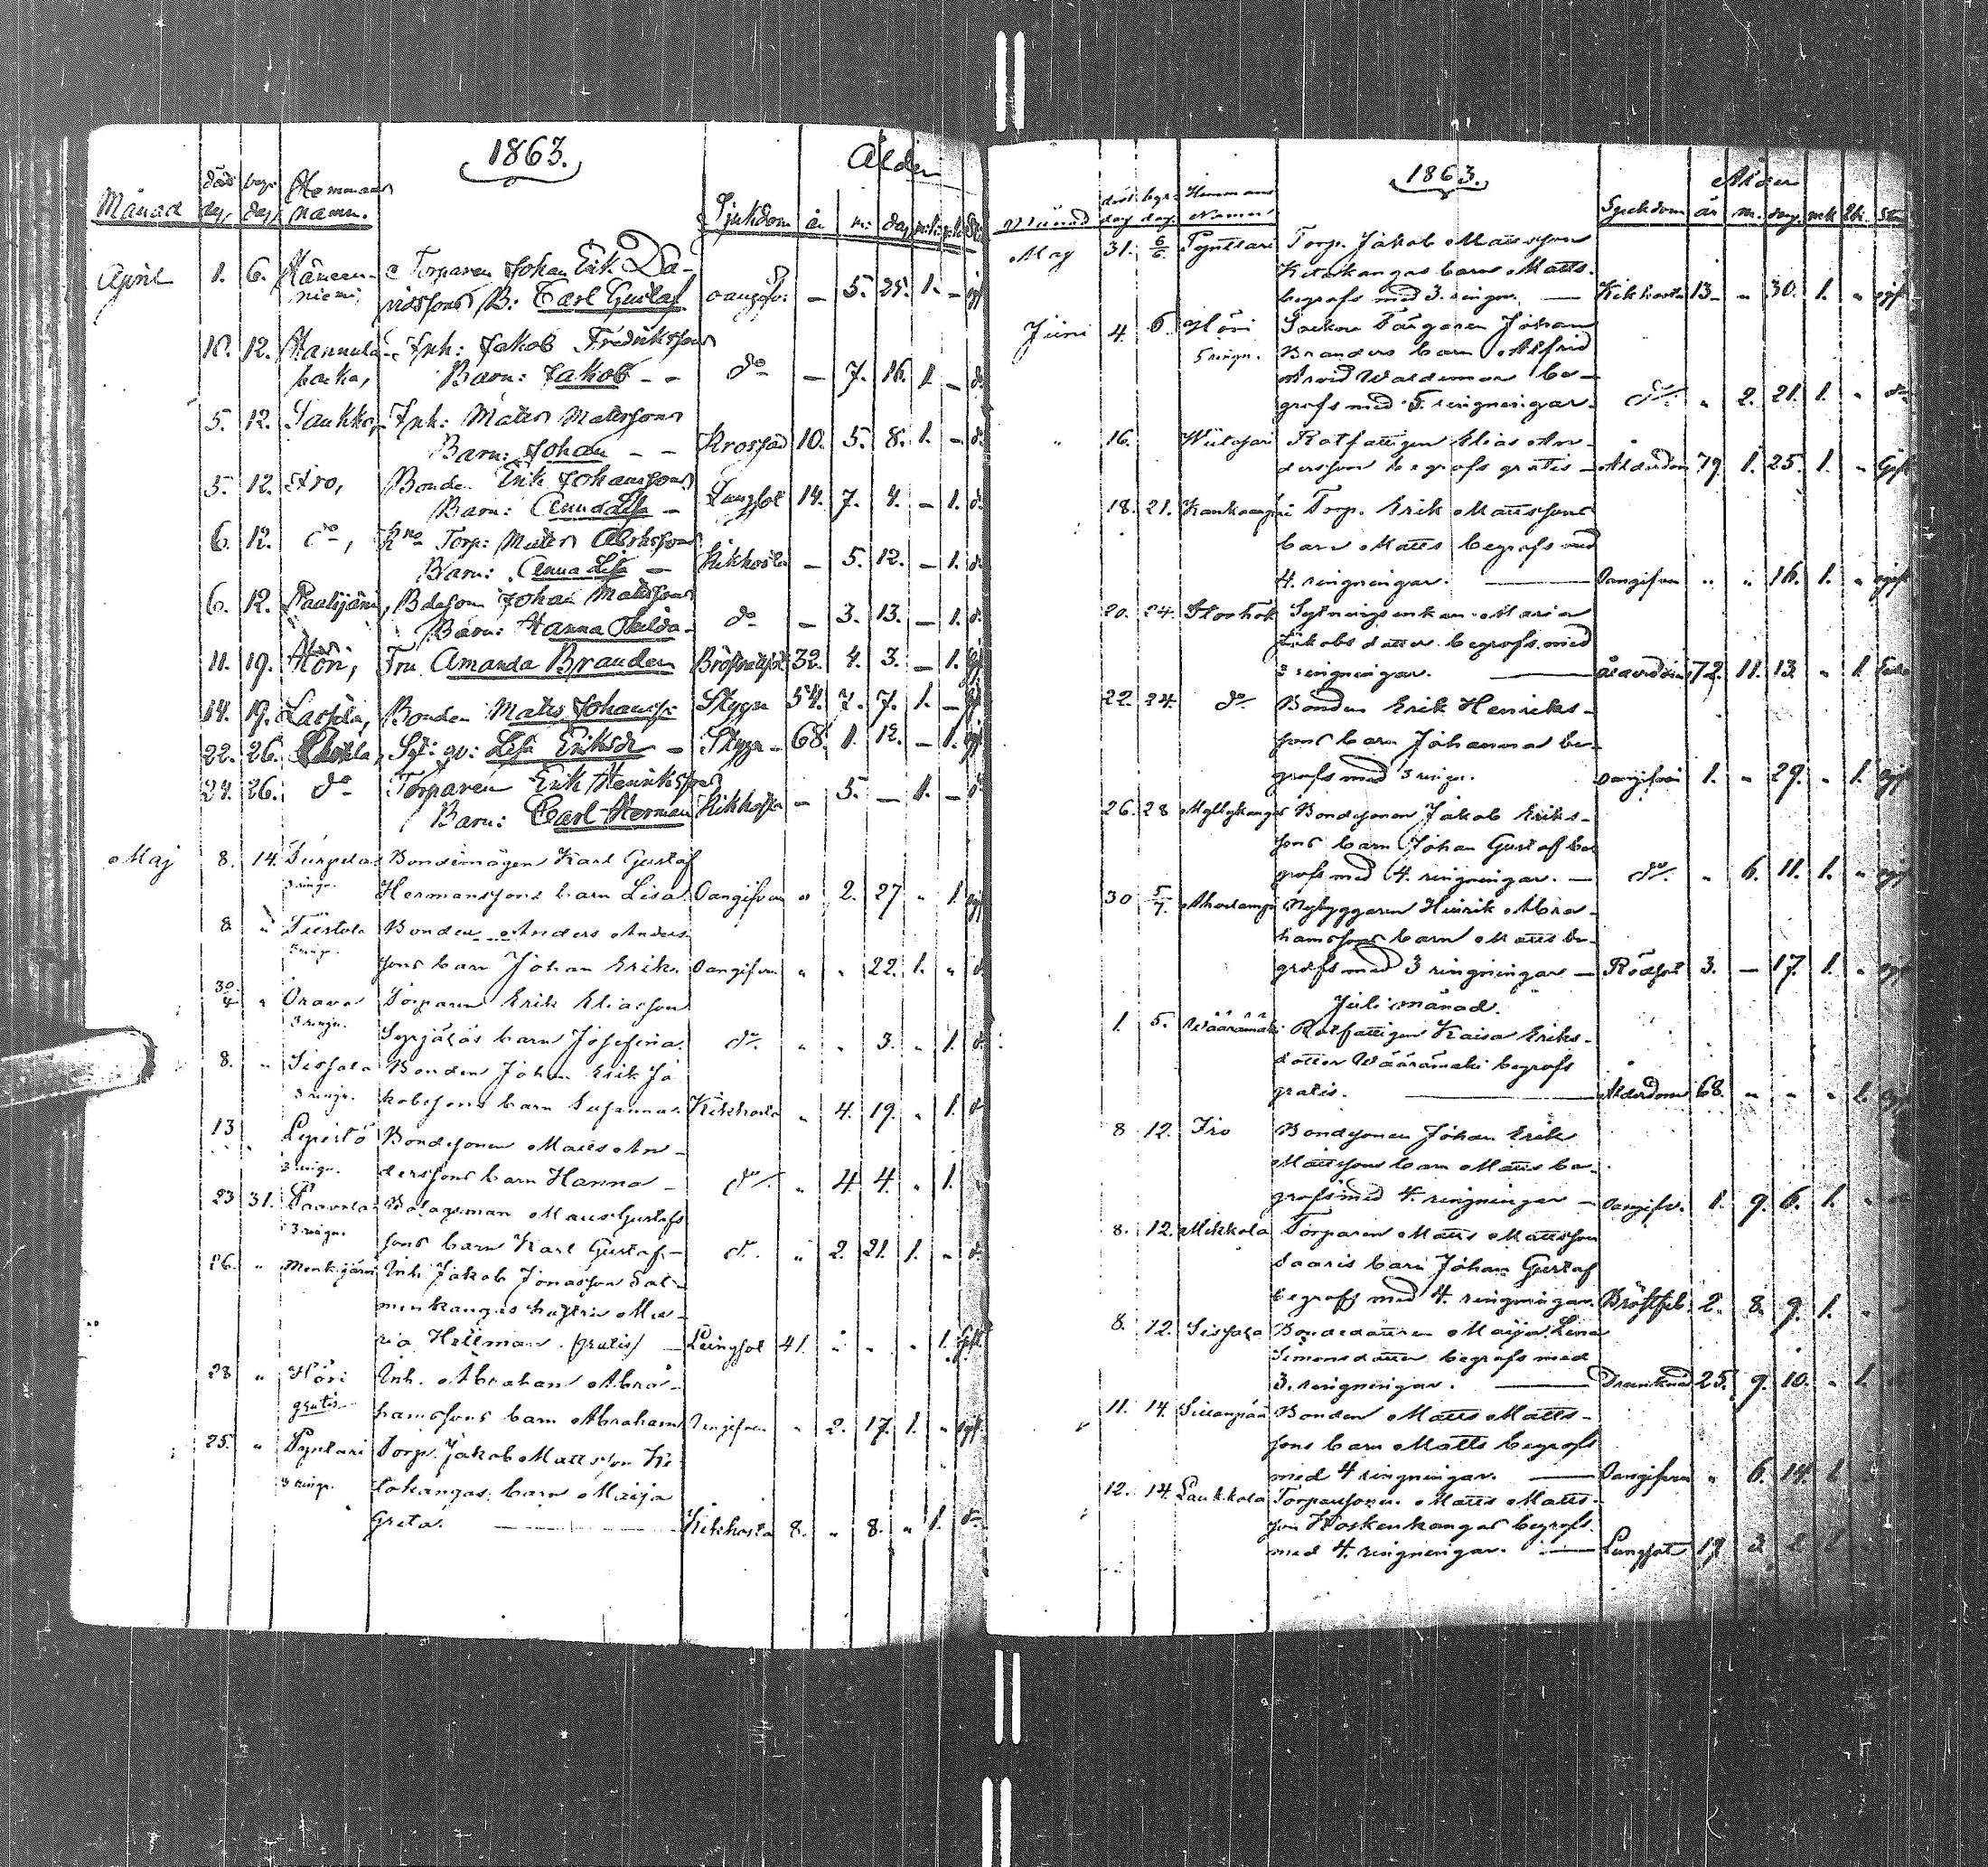 1863.
Ålder
Månad döds dag begr. dag Hemmans namn. Sjukdom år m: dag
April 1. 6. Hämeen- Torparen Johan Erik Da-
niemi, vidssons B: Carl Gustaf oangifv: — 5. 25. 1. —
10. 12. Hannula Inh: Jakob Fredriksson
backa, Barn: Jakob - - do — 7. 16. 1. — do
5. 12. Laukko, Inh: Matts Mattssons
Barn: Johan - - 10. 5. 8. 1. — do
5. 12. Iro, Bonden Erik Johanssons
Barn: Anna Lisa — Lungsot 14. 7. 4. — 1. do
6. 12. do, Torp: Matts
Barn: Anna Lisa — Kikhosta — 5. 12. — 1. do
6. 12. Bdeson Johan Mattssons
Barn: Hanna Hulda - do — 3. 13. — 1. do
11. 19. Höri, Fru Amanda Brander 32. 4. 3. — 1.
14. 19. Lassila, Bonden Matts Johanss: Stygn 54. 7. 7. 1. —
22. 26. Lisa Eriksdr — Stygn - 68. 1. 12. — 1.
24. 26. do Torparen Erik Henrikssons
Barn: Carl Herman Kikhosta — 5. — 1. —
Maj 8. 14. Bondemågen Karl Gustaf
3 ringn. Hermanssons barn Lisa. Oangifven " 2. 27 " 1.
8 " Tiistola Bonden Anders Anders-
3 ringn. sons barn Johan Erik. Oangifven " " 22. 1. "
30/4 " Orava Torparen Erik Eliasson
3 ringn. Syrjäläs barn Josefina. do " " 3. " 1. do
8. " Sissala Bonden Johan Erik Ja-
3 ringn. kobssons barn Susanna. Kikhosta " 4. 19. " 1. do
13 " Lepistö Bondesonen Matts An-
3 ringn. derssons barn Hanna — do " 4. 4. " 1.
23 31. Paavola Bolagsman Matts Gustafs
3 ringn. sons barn Karl Gustaf — do " 2. 21. 1. " do
26. " Menkijärvi Inh. Jakob Jonasson Sal-
menkangas hustru Ma-
ria Hellman. (gratis) — Lungsot 41. " " " 1. Gift.
28 " Höri Inh. Abraham Abra-
gratis hamssons barn Abraham Oangifven " 2. 17. 1. "
25. " Pynttari Torp. Jakob Mattsson Ki-
3 ringn. tokangas barn Maija
Greta. Kikhosta 8. " 8. " 1. do
1863.
Ålder
Månad död dag begr. dag Hemmans Namn Sjukdom år m. dag. mk. Qk.
Maj 31. 6/6 Pynttari Torp. Jakob Mattsson
Kitokangas barn Matts.
begrafs med 3. ringn. — Kikhosta 13. " 30. 1. "
Juni 4. 6. Höri Johan
5 ringn. Branders barn Alfrid
Arvid Waldemar be-
grafs med 5. ringningar. do " 2. 21. 1. " do
" 16. Wiitajari Rotfattigen Elias An-
dersson begrafs gratis — Ålderdom 79. 1. 25. 1. " Gift
18. 21. Torp. Erik Mattssons
barn Matts begrafs med
4. ringningar. — Oangifven " " 16. 1. "
20. 24. Sytningsenkan Maria
Jakobsdotter begrafs med
3 ringningar. — ålderdom 72. 11. 13. " 1.
22. 24. do Bonden Erik Henriks-
sons barn Johanna be-
grafs med 3 ringn. oangifven 1. " 29. " 1.
26. 28 Myllykangas Bondesonen Jakob Eriks-
sons barn Johan Gustaf be-
grafs med 4. ringningar. — do " 6. 11. 1. "
30 5/7. Nybyggaren Hinrik Abra-
hamssons barn Matts be-
grafs med 3 ringningar — Rödsot 3. — 17. 1. "
Juli månad.
1. 5. Wäärämäki Rotfattigen Kaisa Eriks-
dotter Wäärämäki begrafs
gratis. — Ålderdom 68. " " " 1.
8 12. Iro Bondesonen Johan Erik
Mattssons barn Matts be-
grafs med 4. ringningar — oangifv. 1. 9. 6. 1. "
8. 12. Mikkola Torparen Matts Mattsson
Saaris barn Johan Gustaf
begrafs med 4. ringningar. 2. 8. 9. 1. "
8. 12. Sissala Bondedottren Maija Lena
Simonsdotter begrafs med
3. ringningar. — Drunknad 25. 9. 10. " 1.
11. 14. Sillanpää Bonden Matts Matts-
sons barn Matts begrafs
med 4 ringningar. — Oangifven " 6. 14. 1.
12. 14. Laukkola Torparsonen Matts Matts-
son Koskenkangas begrafs
med 4. ringningar. — Lungsot 19. 2. 2. 1.